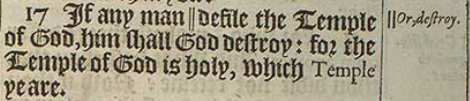 17 If any man ||defile the Temple
of God, him ſhall God deſtroy: for the
Temple of God is holy, which Temple
ye are.
||Or, deſtroy.